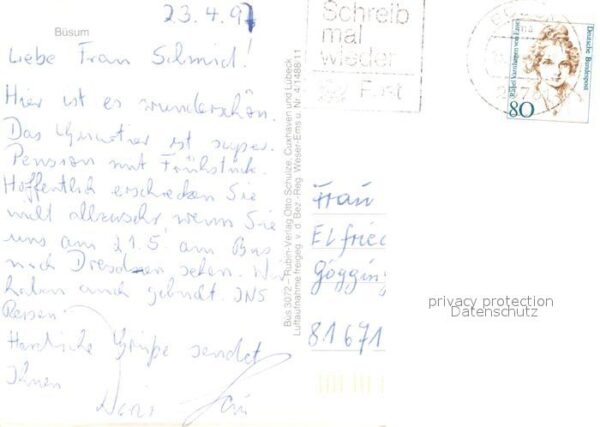 23.4.97
Büsum
Liebe Frau Schmid!
Hier ist es wunderschön.
Das Quartier ist super.
Pension mit Frühstück.
Hoffentlich erschrecken Sie
nicht allzusehr wenn Sie
uns am 21.5. am Bus
nach Dresden sehen. Wir
haben auch gebucht. INS
Reisen.
Herzliche Grüße sendet
Ihnen
Büs 3072 – Rubin-Verlag Otto Schulze, Cuxhaven und Lübeck
Luftaufnahme freigeg. v. d. Bez.-Reg. Weser-Ems u. Nr. 4/1486/11
Schreib
mal
wieder
Post
Deutsche Bundespost
Rahel Varnhagen von Ense
80
Frau
Elfried
Gögging
81671
privacy protection
Datenschutz